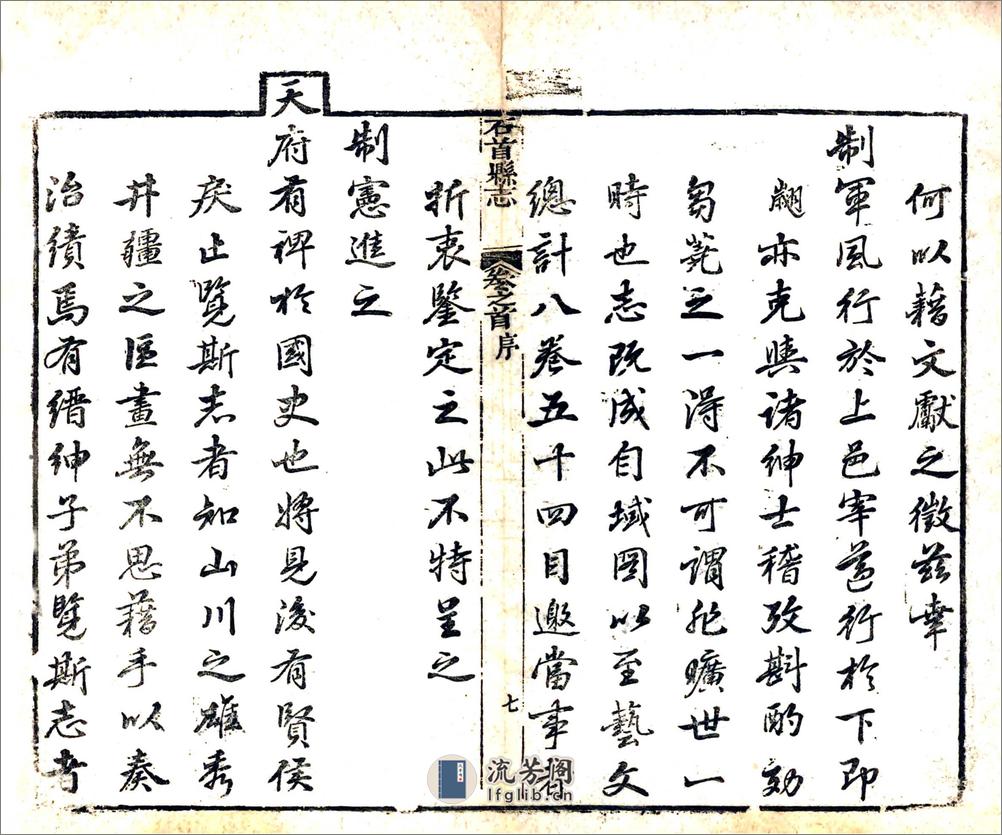 何以藉文獻之徵茲幸
制軍風行於上邑宰行於下即
亦克與諸紳士稽攷斟酌効
芻蕘之一得不可謂非曠世一
時也志既成自域圖以至藝文
總計八卷五十四目邀當事
石首縣志 卷之首序 七
折衷鑒定之此不特呈之
制憲進之
天府有裨於國史也將見後有賢侯
戾止覽斯志者知山川之雄秀
井疆之區畫無不思藉手以奏
治績焉有縉紳子弟覽斯志考
流芳閣
lfglib.cn